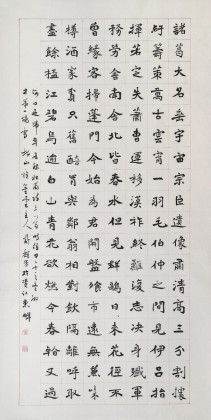 諸葛大名垂宇宙宗臣遺像肅清高三分割據
紆籌策萬古雲霄一羽毛伯仲之間見伊呂指
揮若定失蕭曹運移漢祚終難復志決身殲軍
務勞舍南舍北皆春水但見群鷗日日來花徑不
曾緣客掃蓬門今始為君開盤飧市遠無兼味
樽酒家貧只舊醅肯與鄰翁相對飲隔籬呼取
盡餘杯江碧鳥逾白山青花欲燃今春看又過
何日是歸年